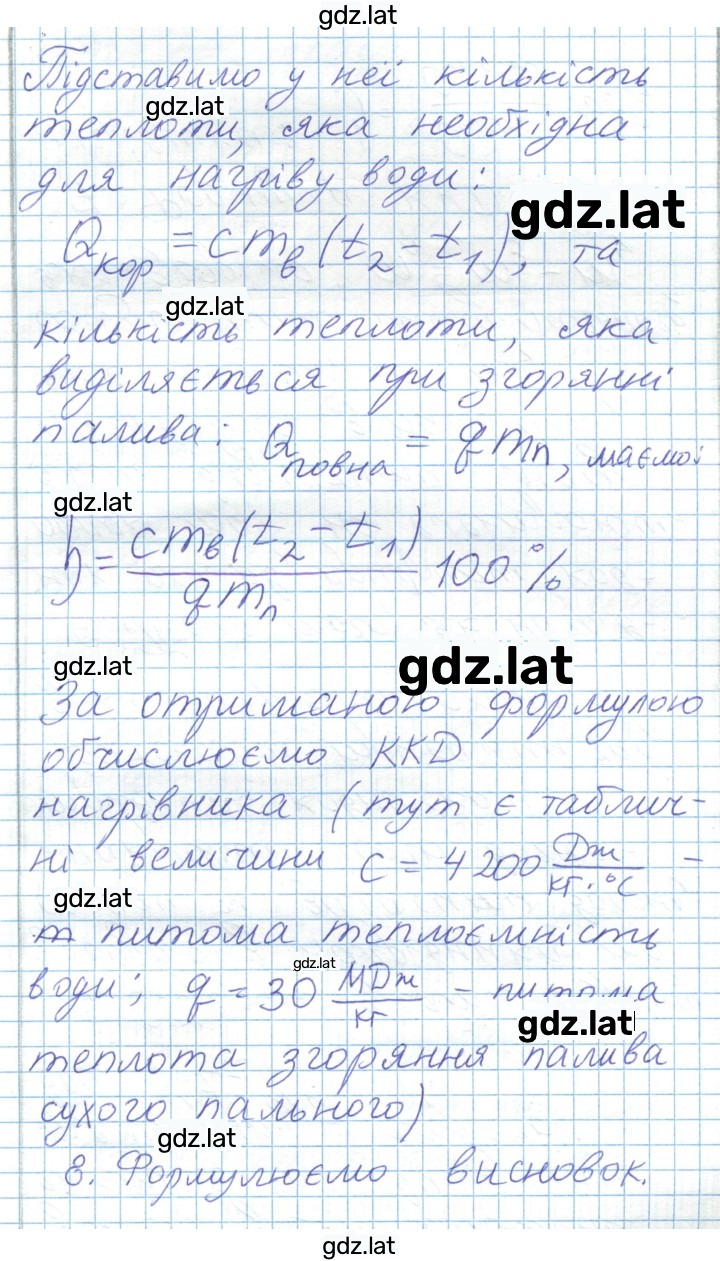 gdz.lat
Підставимо у неї кількість
gdz.lat
теплоти, яка необхідна
для нагріву води:
gdz.lat
Qкор = cmв(t₂ - t₁), та
gdz.lat
кількість теплоти, яка
виділяється при згорянні
палива: Qповна = qmп, маємо:
gdz.lat
η = cmв(t₂ - t₁) / qmп 100 %
gdz.lat
gdz.lat
За отриманою формулою
обчислюємо ККД
нагрівника (тут є таблич-
ні величини c = 4200 Дж/кг·°C -
gdz.lat
питома теплоємність
gdz.lat
води; q = 30 МДж/кг - питома
gdz.lat
теплота згоряння палива
сухого пального)
gdz.lat
8. Формулюємо висновок.
gdz.lat